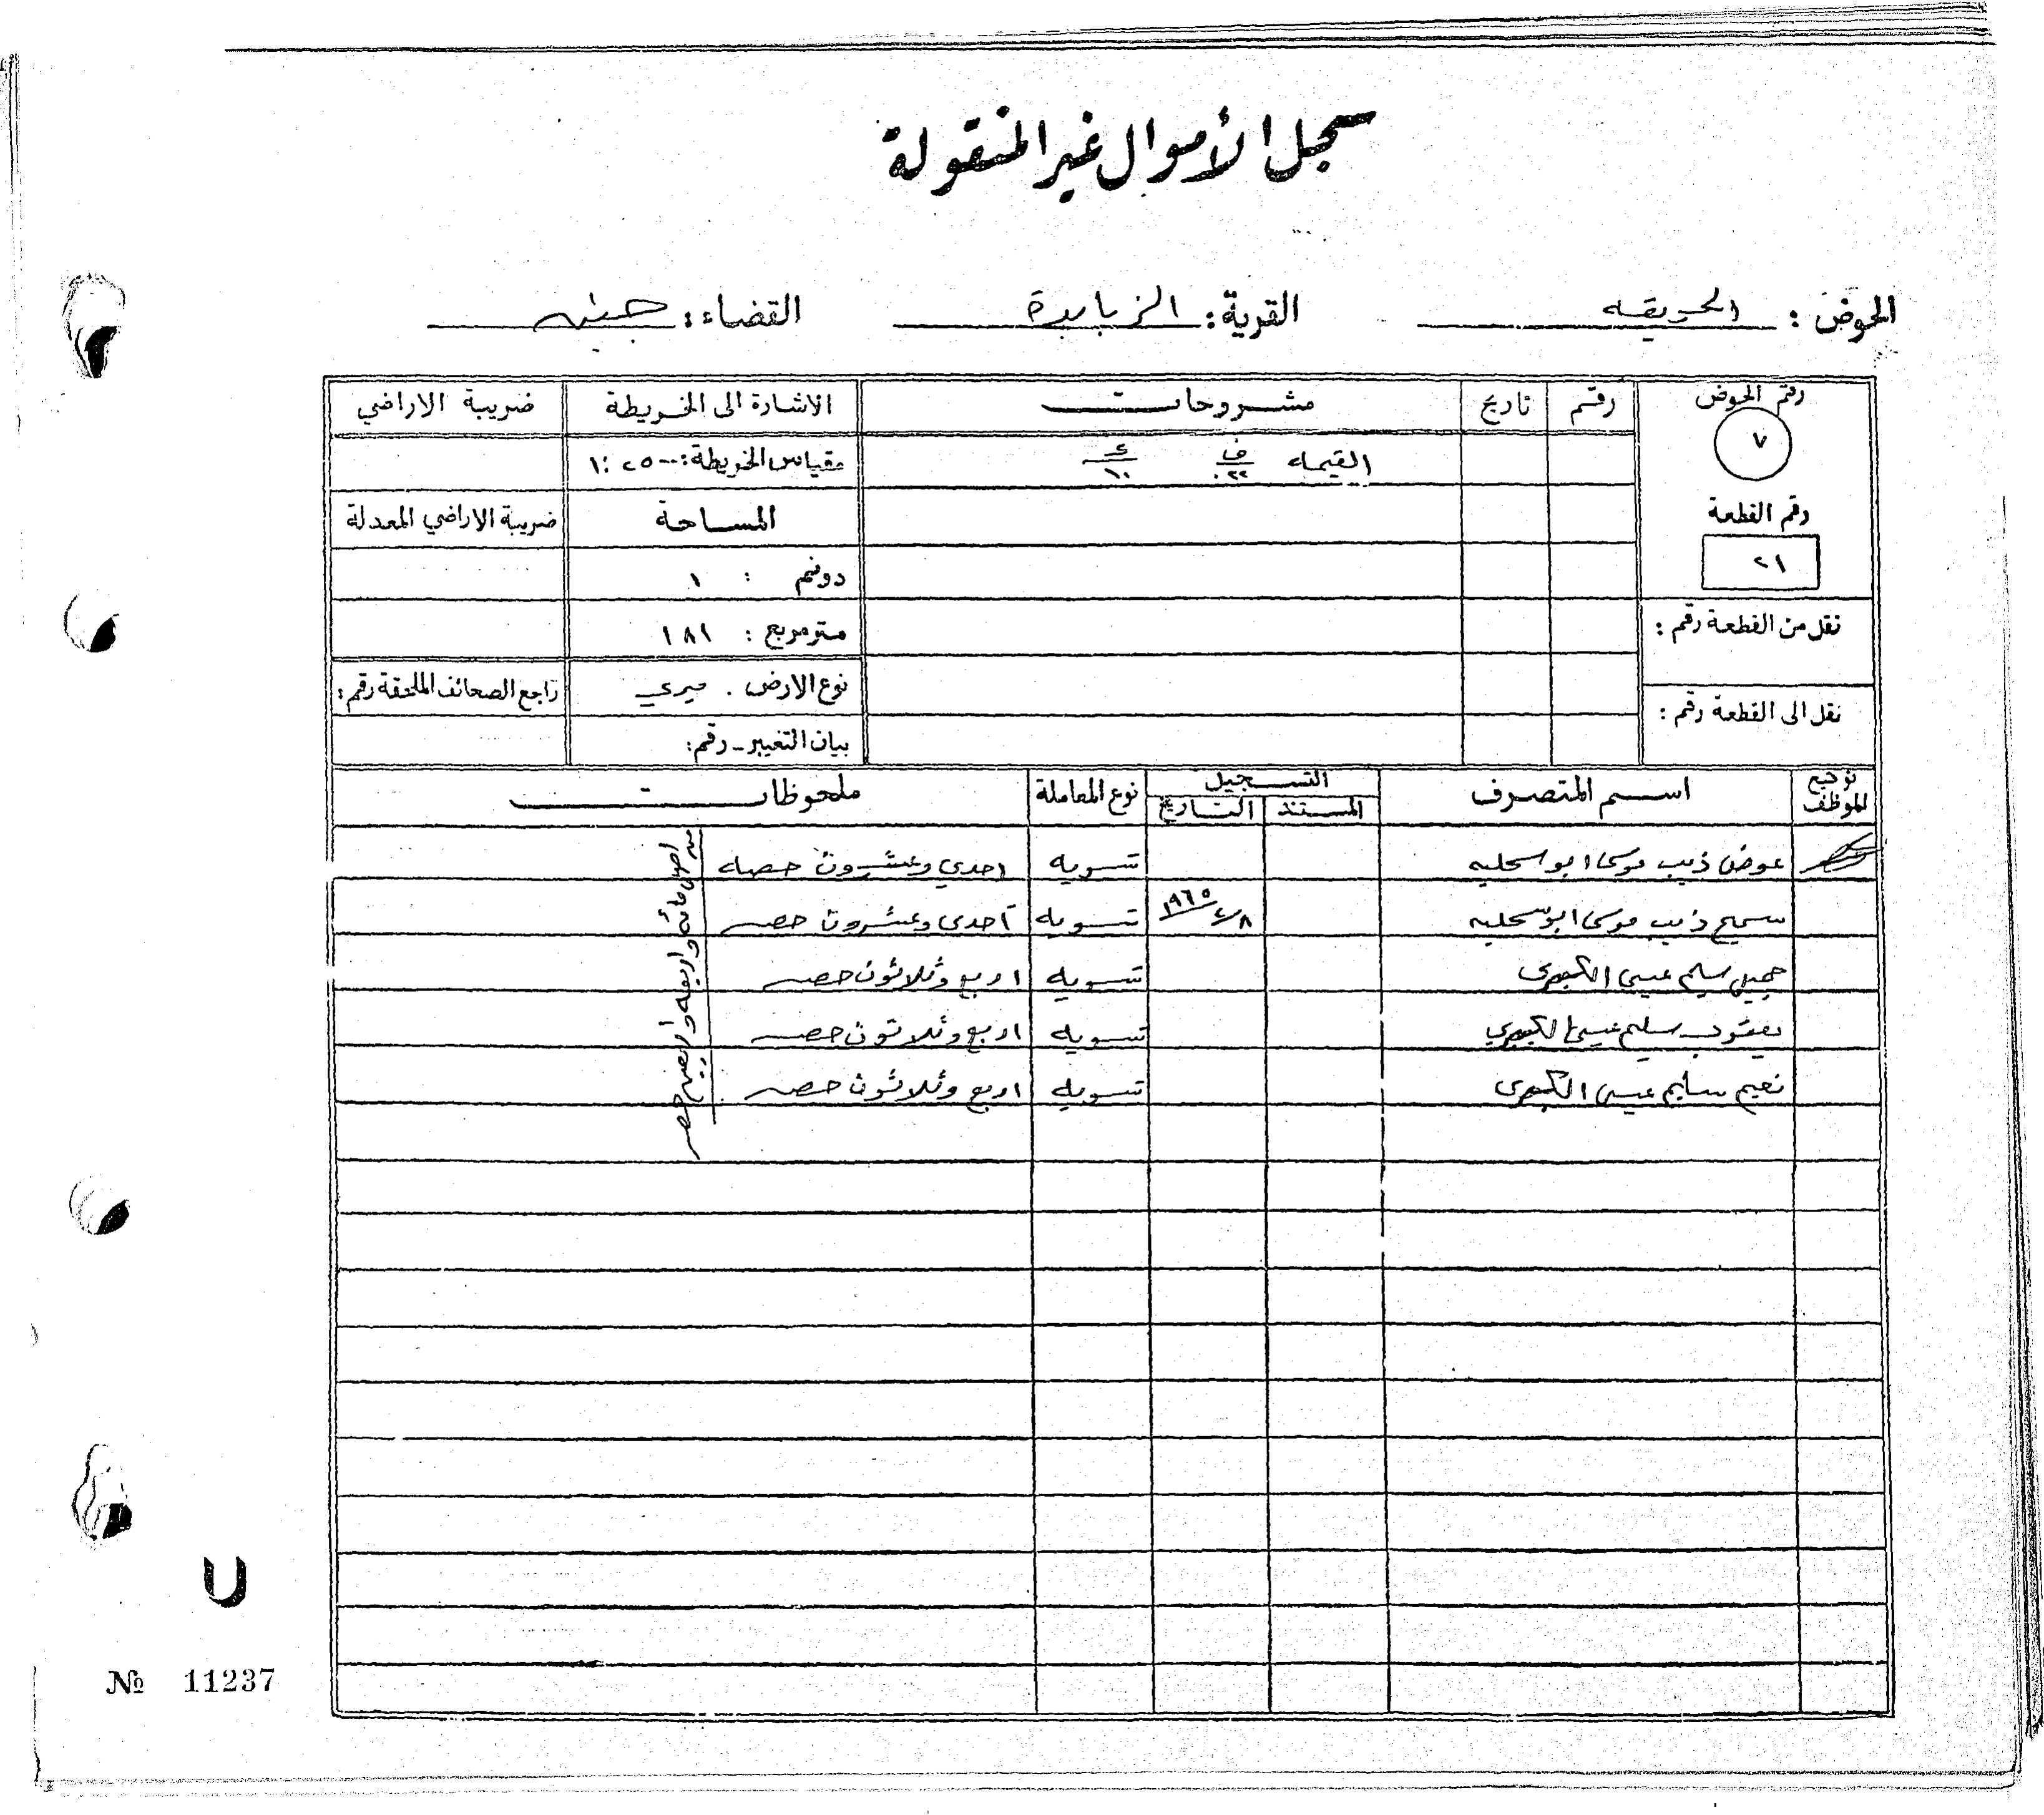 سجل الأموال غير المنقولة
الحوض : الحريقه القرية : الزبابدة القضاء : جنين
رقم الحوض رقم تاريخ مشروحات الاشارة الى الخريطة ضريبة الاراضي
٧ القيمه ف ٠٢٢ ك ١٠ مقياس الخريطة : ١:٢٥٠٠
رقم القطعة المساحة ضريبة الاراضي المعدلة
٢١ دونم : ١
نقل من القطعة رقم : متر مربع : ١٨١
نوع الارض . ميري راجع الصحائف الملحقة رقم :
نقل الى القطعة رقم : بيان التغيير - رقم :
توقيع الموظف اسم المتصرف التسجيل نوع المعاملة ملحوظات
المستند التاريخ
عوض ذيب موسى ابو سحليه تسويه احدى وعشرون حصه
سميح ذيب موسى ابو سحليه ٨/٤/١٩٦٥ تسويه احدى وعشرون حصه
جميل سليم عيسى تسويه اربع وثلاثون حصه
يعقوب سليم عيسى تسويه اربع وثلاثون حصه
نعيم سليم عيسى تسويه اربع وثلاثون حصه
من اصل مائه واربعه واربعين حصه
№ 11237